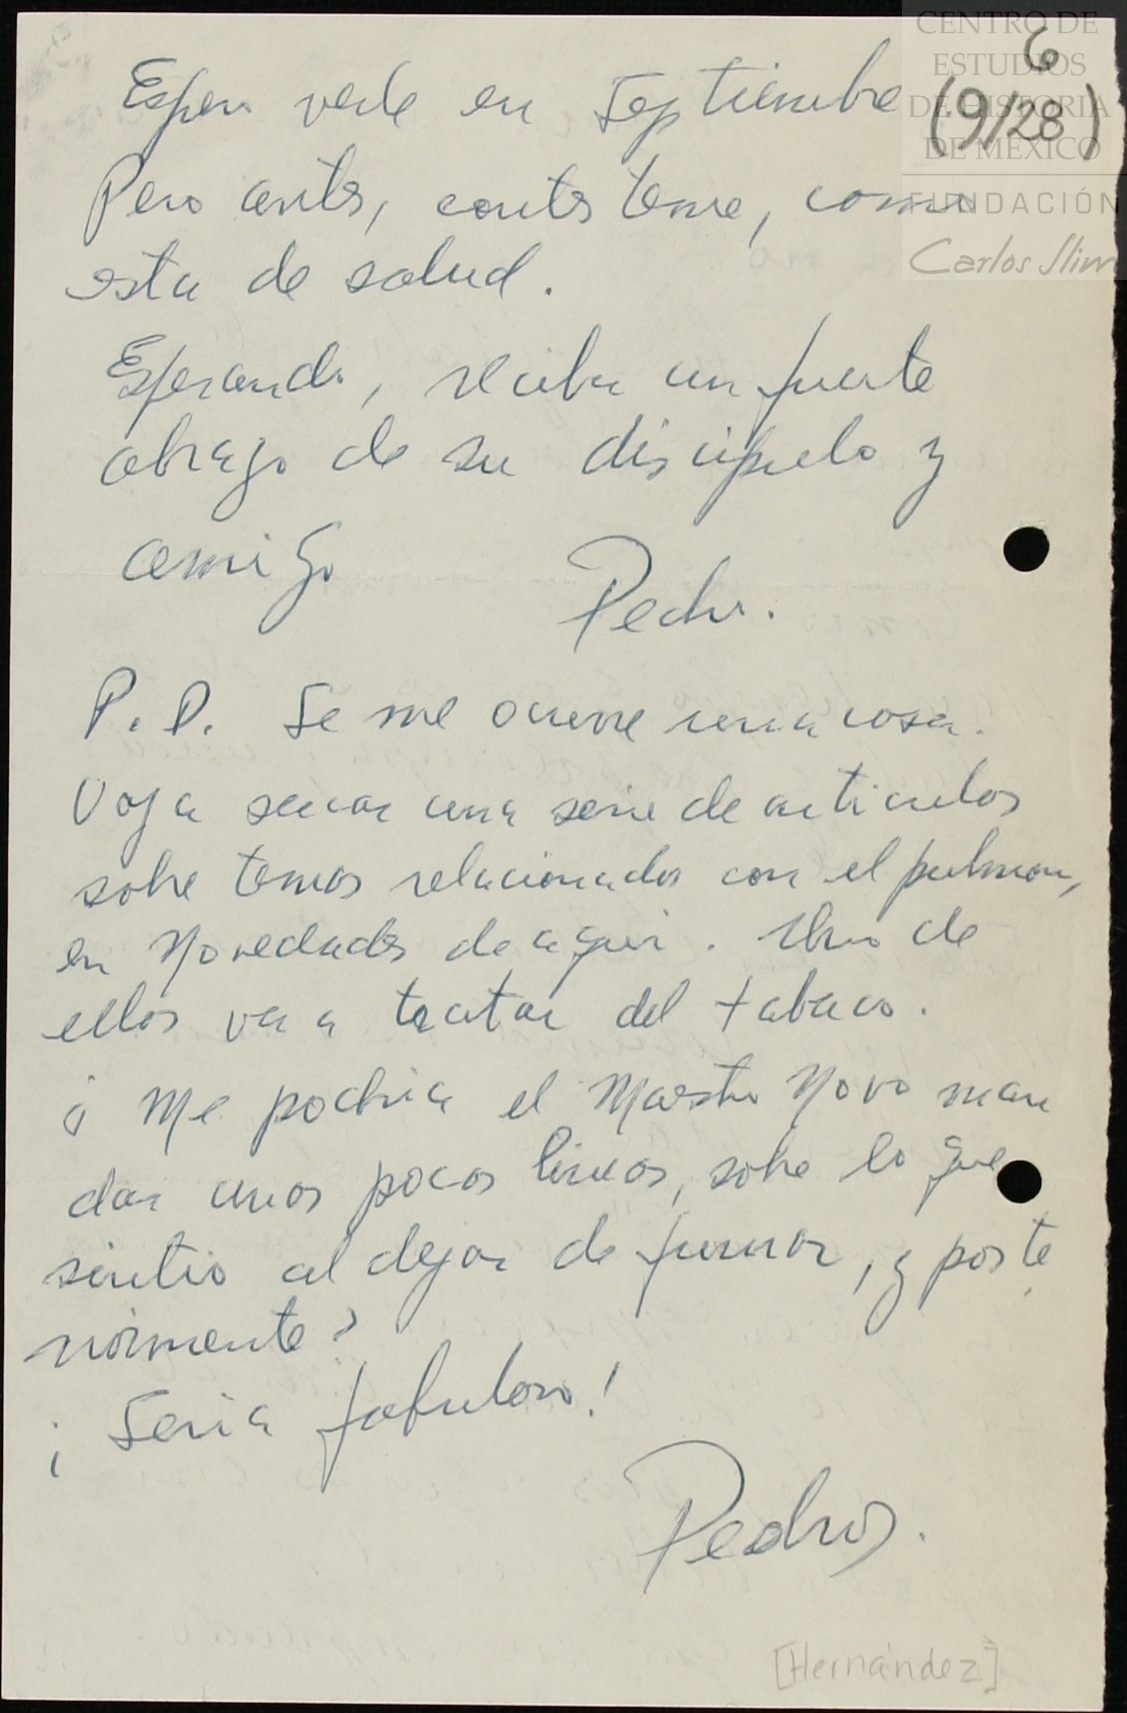 CENTRO DE
ESTUDIOS
DE HISTORIA
DE MÉXICO
FUNDACIÓN
Carlos Slim
6
(9/28)
Espero verle en Septiembre
Pero antes, contésteme, como
esta de salud.
Esperando, reciba un fuerte
abrazo de su discipulo y
amigo
Pedro.
P.D. Se me ocurre una cosa.
Voy a sacar una serie de articulos
sobre temas relacionados con el pulmon,
en Novedades de aqui. Uno de
ellos va a tratar del tabaco.
¿Me podria el Maestro Novo man
dar unas pocas lineas, sobre lo que
sintio al dejar de fumar, y poste
riormente?
¡Seria fabuloso!
Pedro.
[Hernández]